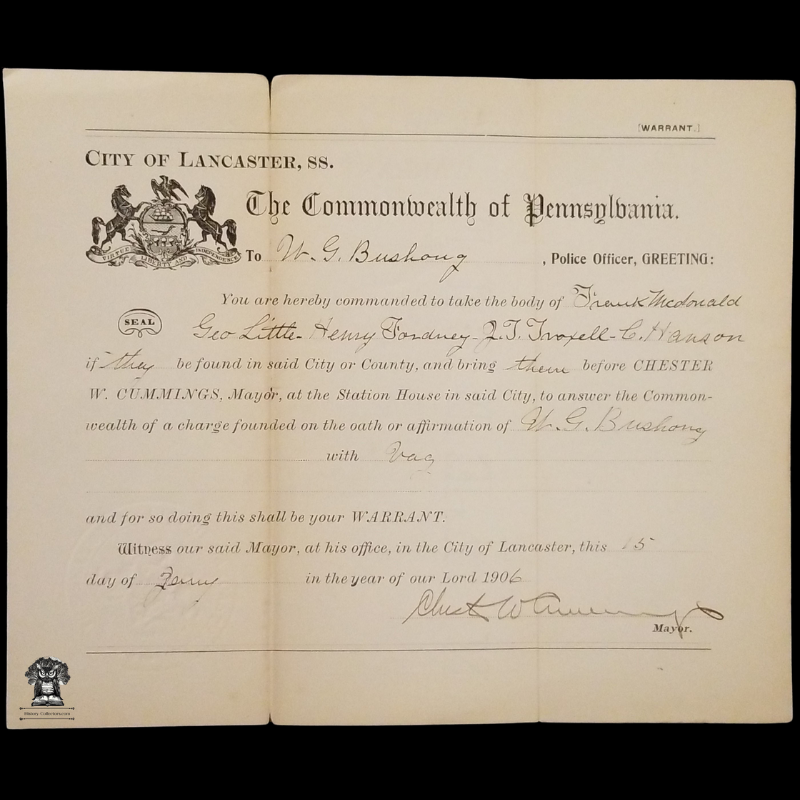 [WARRANT.]
CITY OF LANCASTER, SS.
The Commonwealth of Pennsylvania.
VIRTUE LIBERTY AND INDEPENDENCE
To W. G. Bushong, Police Officer, GREETING:
You are hereby commanded to take the body of Frank Mcdonald
SEAL
Geo Little - Henry Fordney - J. T. Troxell - C. Hanson
if they be found in said City or County, and bring them before CHESTER
W. CUMMINGS, Mayor, at the Station House in said City, to answer the Common-
wealth of a charge founded on the oath or affirmation of W. G. Bushong
with Vag
and for so doing this shall be your WARRANT.
Witness our said Mayor, at his office, in the City of Lancaster, this 15
day of in the year of our Lord 1906
Chest W Cummings
Mayor.